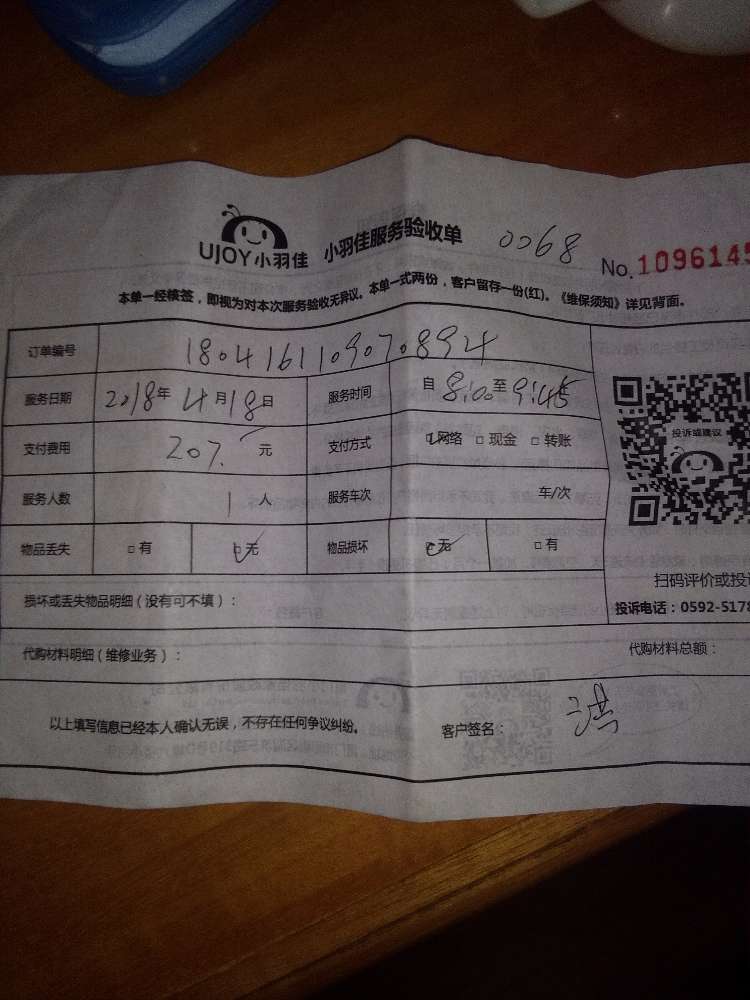 UJOY小羽佳 小羽佳服务验收单 0068 No.1096145
本单一经核签，即视为对本次服务验收无异议。本单一式两份，客户留存一份(红)。《维保须知》详见背面。
订单编号 1804161109070894
服务日期 2018年4月18日 服务时间 自8:00至9:45
支付费用 207.元 支付方式 ☑网络 □现金 □转账
投诉或建议
服务人数 1人 服务车次 车/次
物品丢失 □有 ☑无 物品损坏 ☑无 □有
扫码评价或投
损坏或丢失物品明细（没有可不填）：
投诉电话：0592-5178
代购材料明细（维修业务）： 代购材料总额：
以上填写信息已经本人确认无误，不存在任何争议纠纷。 客户签名： 洪